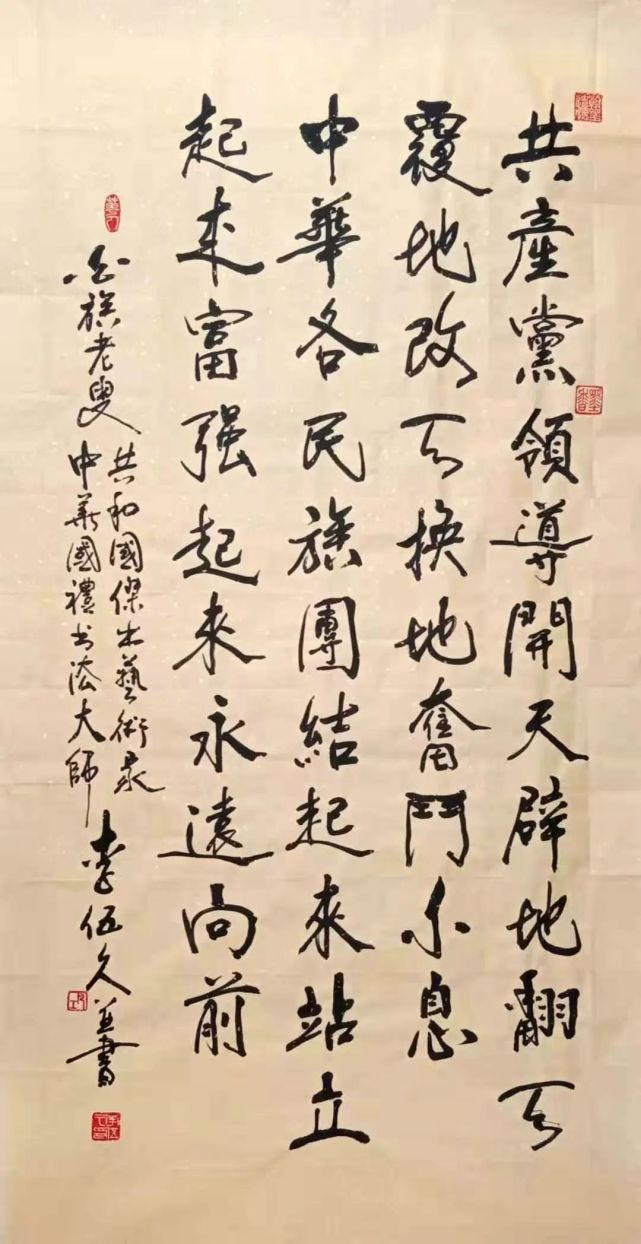 共產黨領導開天辟地翻天
覆地改天換地奮鬥不息
中華各民族團結起來站立
起來富强起來永遠向前
白族老叟
共和國傑出藝術家
中華國禮书法大師
李伍久並書